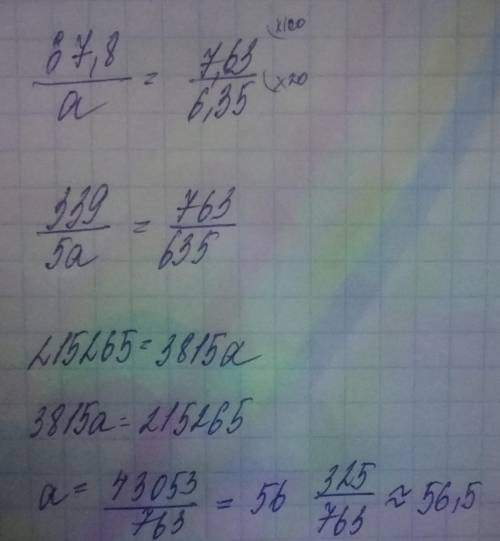 67,8/a = 7,63/6,35 (x100 (x20
339/5a = 763/635
215265 = 3815a
3815a = 215265
a = 43053/763 = 56 325/763 ≈ 56,5